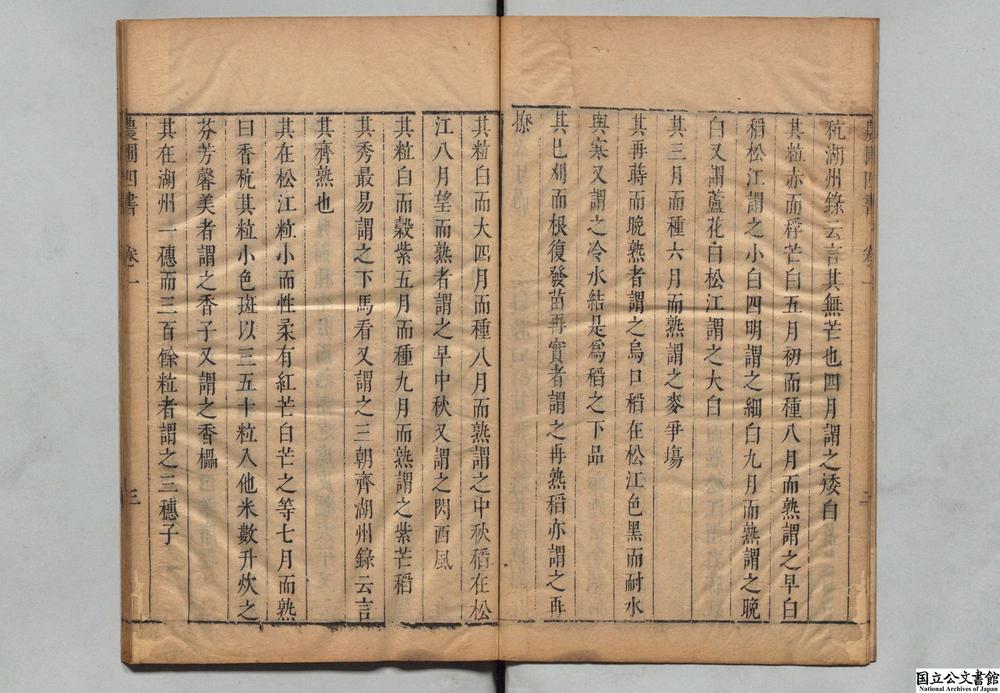 農圃四書　卷一　二
秔湖州錄云言其無芒也四月謂之矮白
其粒赤而稃芒白五月初而種八月而熟謂之早白
稻松江謂之小白四明謂之細白九月而熟謂之晚
白又謂蘆花白松江謂之大白
其三月而種六月而熟謂之麥爭塲
其再蒔而晚熟者謂之烏口稻在松江色黑而耐水
與寒又謂之冷水結是為稻之下品
其已刈而根復發苗再實者謂之再熟稻亦謂之再
撩
其粒白而大四月而種八月而熟謂之中秋稻在松
江八月望而熟者謂之早中秋又謂之閃西風
其粒白而穀紫五月而種九月而熟謂之紫芒稻
其秀最易謂之下馬看又謂之三朝齊湖州錄云言
其齊熟也
其在松江粒小而性柔有紅芒白芒之等七月而熟
曰香秔其粒小色斑以三五十粒入他米數升炊之
芬芳馨美者謂之香子又謂之香櫑
其在湖州一穗而三百餘粒者謂之三穗子
農圃四書　卷一　三
国立公文書館
National Archives of Japan